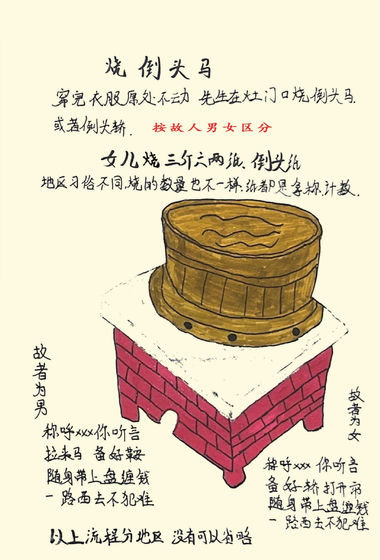 烧倒头马
穿完衣服原处不动 先生在灶门口烧倒头马
或者倒头轿. 按故人男女区分
女儿烧三斤六两纸、倒头纸
地区习俗不同,烧的数量也不一样,纸都是拿称,计数.
故者为男
称呼xxx你听言
拉来马 备好鞍
随身带上盘缠钱
一路西去不犯难
故者为女
称呼xxx 你听言
备好轿打开帘
随身带上盘缠钱
一路西去不犯难
以上流程分地区 没有可以省略